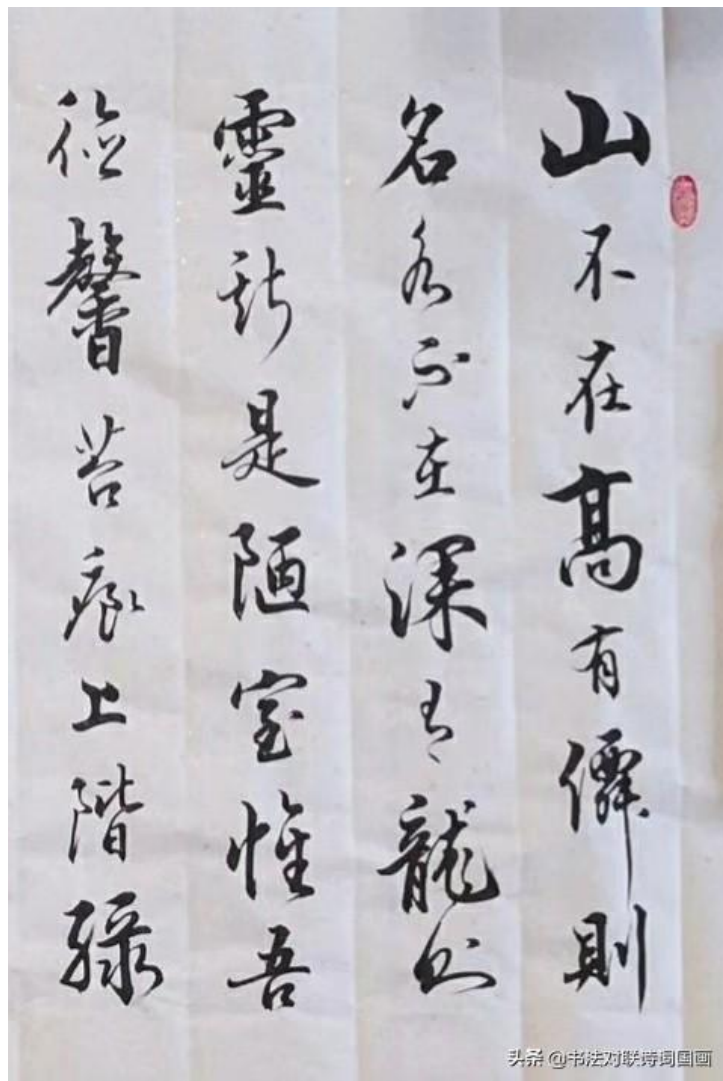 山不在高有僊則
名水不在深有龍則
靈斯是陋室惟吾
德馨苔痕上階綠
头条 @书法对联诗词国画